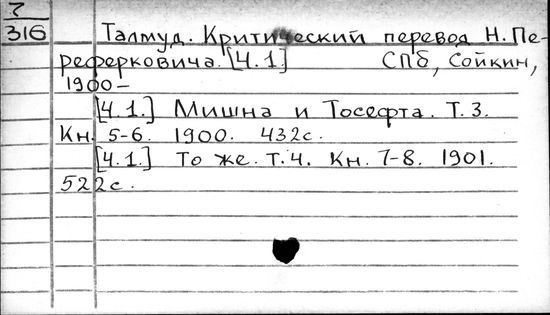 7
316
Талмуд. Критический перевод Н. Пе-
реферковича. [Ч.1] СПб, Сойкин,
1900-
[Ч.1.] Мишна и Тосефта. Т.3.
Кн. 5-6. 1900. 432с.
[Ч.1.] То же. Т.4. Кн. 7-8. 1901.
522с.